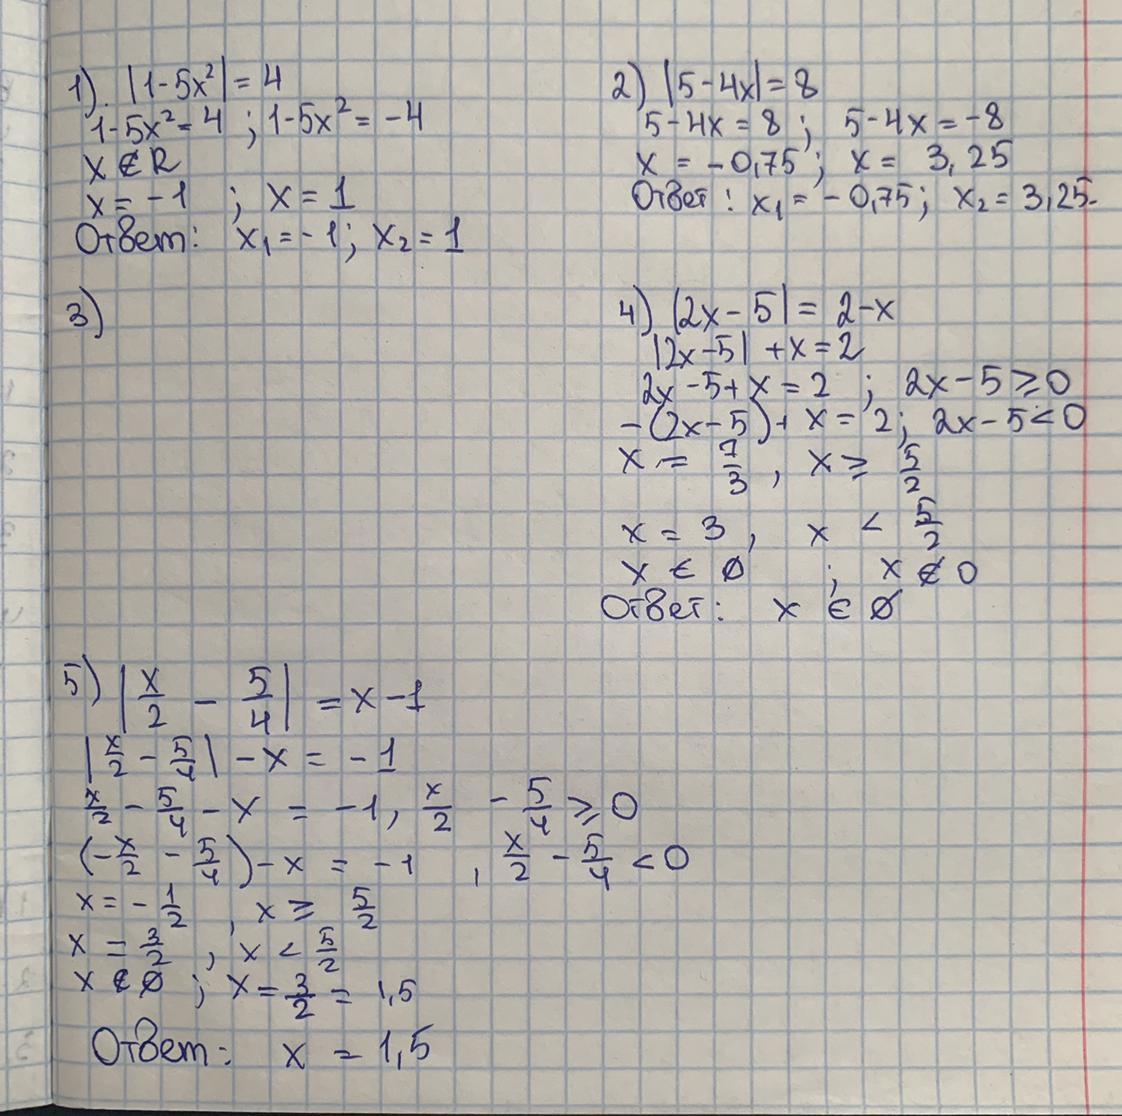 1). |1-5x²| = 4
1-5x² = 4 ; 1-5x² = -4
x ∉ R
x = -1 ; x = 1
Ответ: x₁ = -1; x₂ = 1
2) |5-4x| = 8
5-4x = 8 ; 5-4x = -8
x = -0,75 ; x = 3,25
Ответ: x₁ = -0,75; x₂ = 3,25.
3)
4) |2x-5| = 2-x
|2x-5| + x = 2
2x-5+x = 2 ; 2x-5 ≥ 0
-(2x-5)+x = 2; 2x-5 < 0
x = 7/3 , x ≥ 5/2
x = 3 , x < 5/2
x ∈ ∅ ; x ∉ 0
Ответ: x ∈ ∅
5) |x/2 - 5/4| = x-1
|x/2 - 5/4| - x = -1
x/2 - 5/4 - x = -1, x/2 - 5/4 ≥ 0
(-x/2 - 5/4) - x = -1 , x/2 - 5/4 < 0
x = -1/2 , x ≥ 5/2
x = 3/2 , x < 5/2
x ∉ ∅ ; x = 3/2 = 1,5
Ответ: x = 1,5